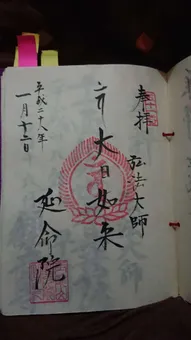 奉拝
弘法大師
大日如来
延命院
平成二十八年
一月十三日